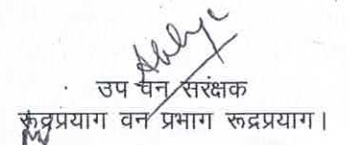 उप वन सरंक्षक
रूद्रप्रयाग वन प्रभाग रूद्रप्रयाग।